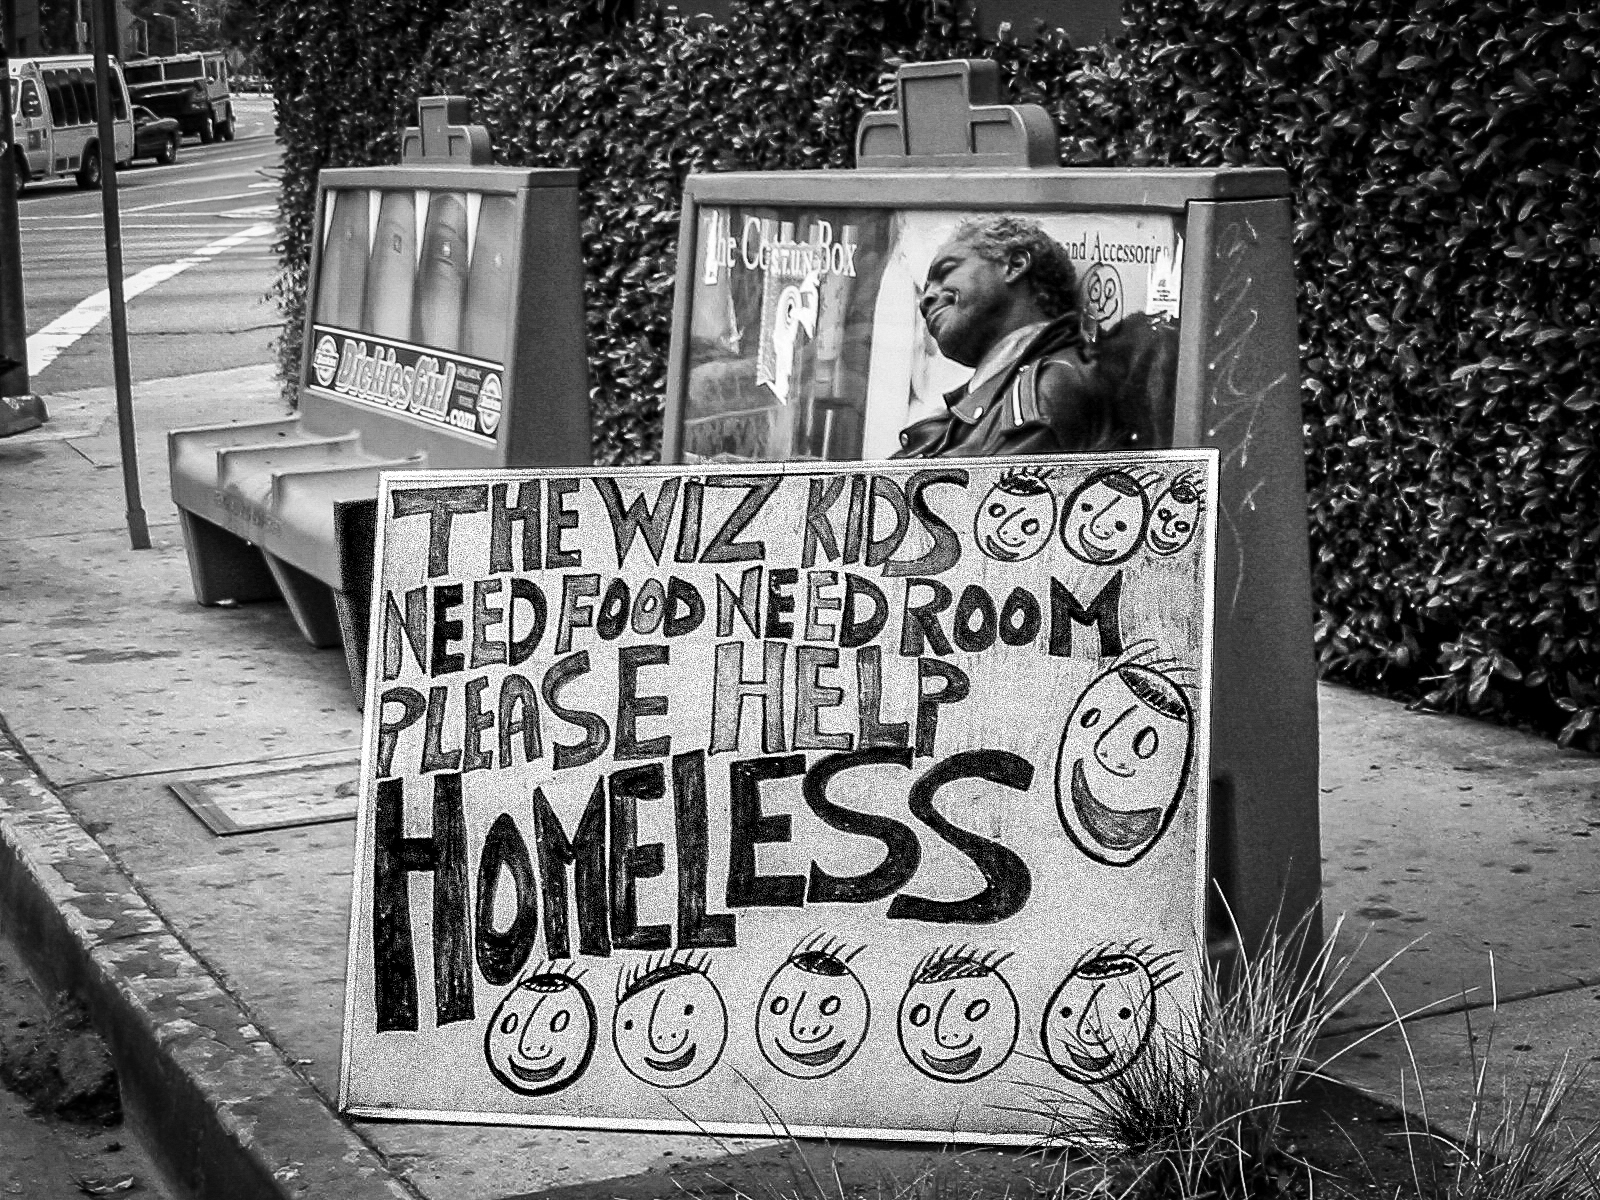 THE WIZ KIDS
NEED FOOD NEED ROOM
PLEASE HELP
HOMELESS
The Costum Box
and Accessories
DickiesGirl.com